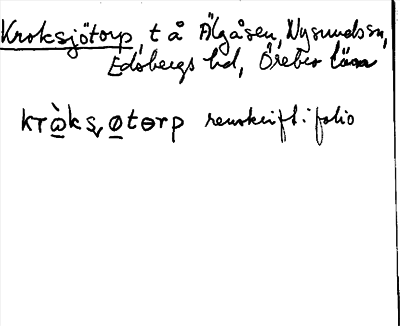 Kroksjötorp, t å Älgåsen, Nysundssn,
Edsbergs hd, Örebro län
krὼ̲ks, ø̲tɵrp renskrift i folio